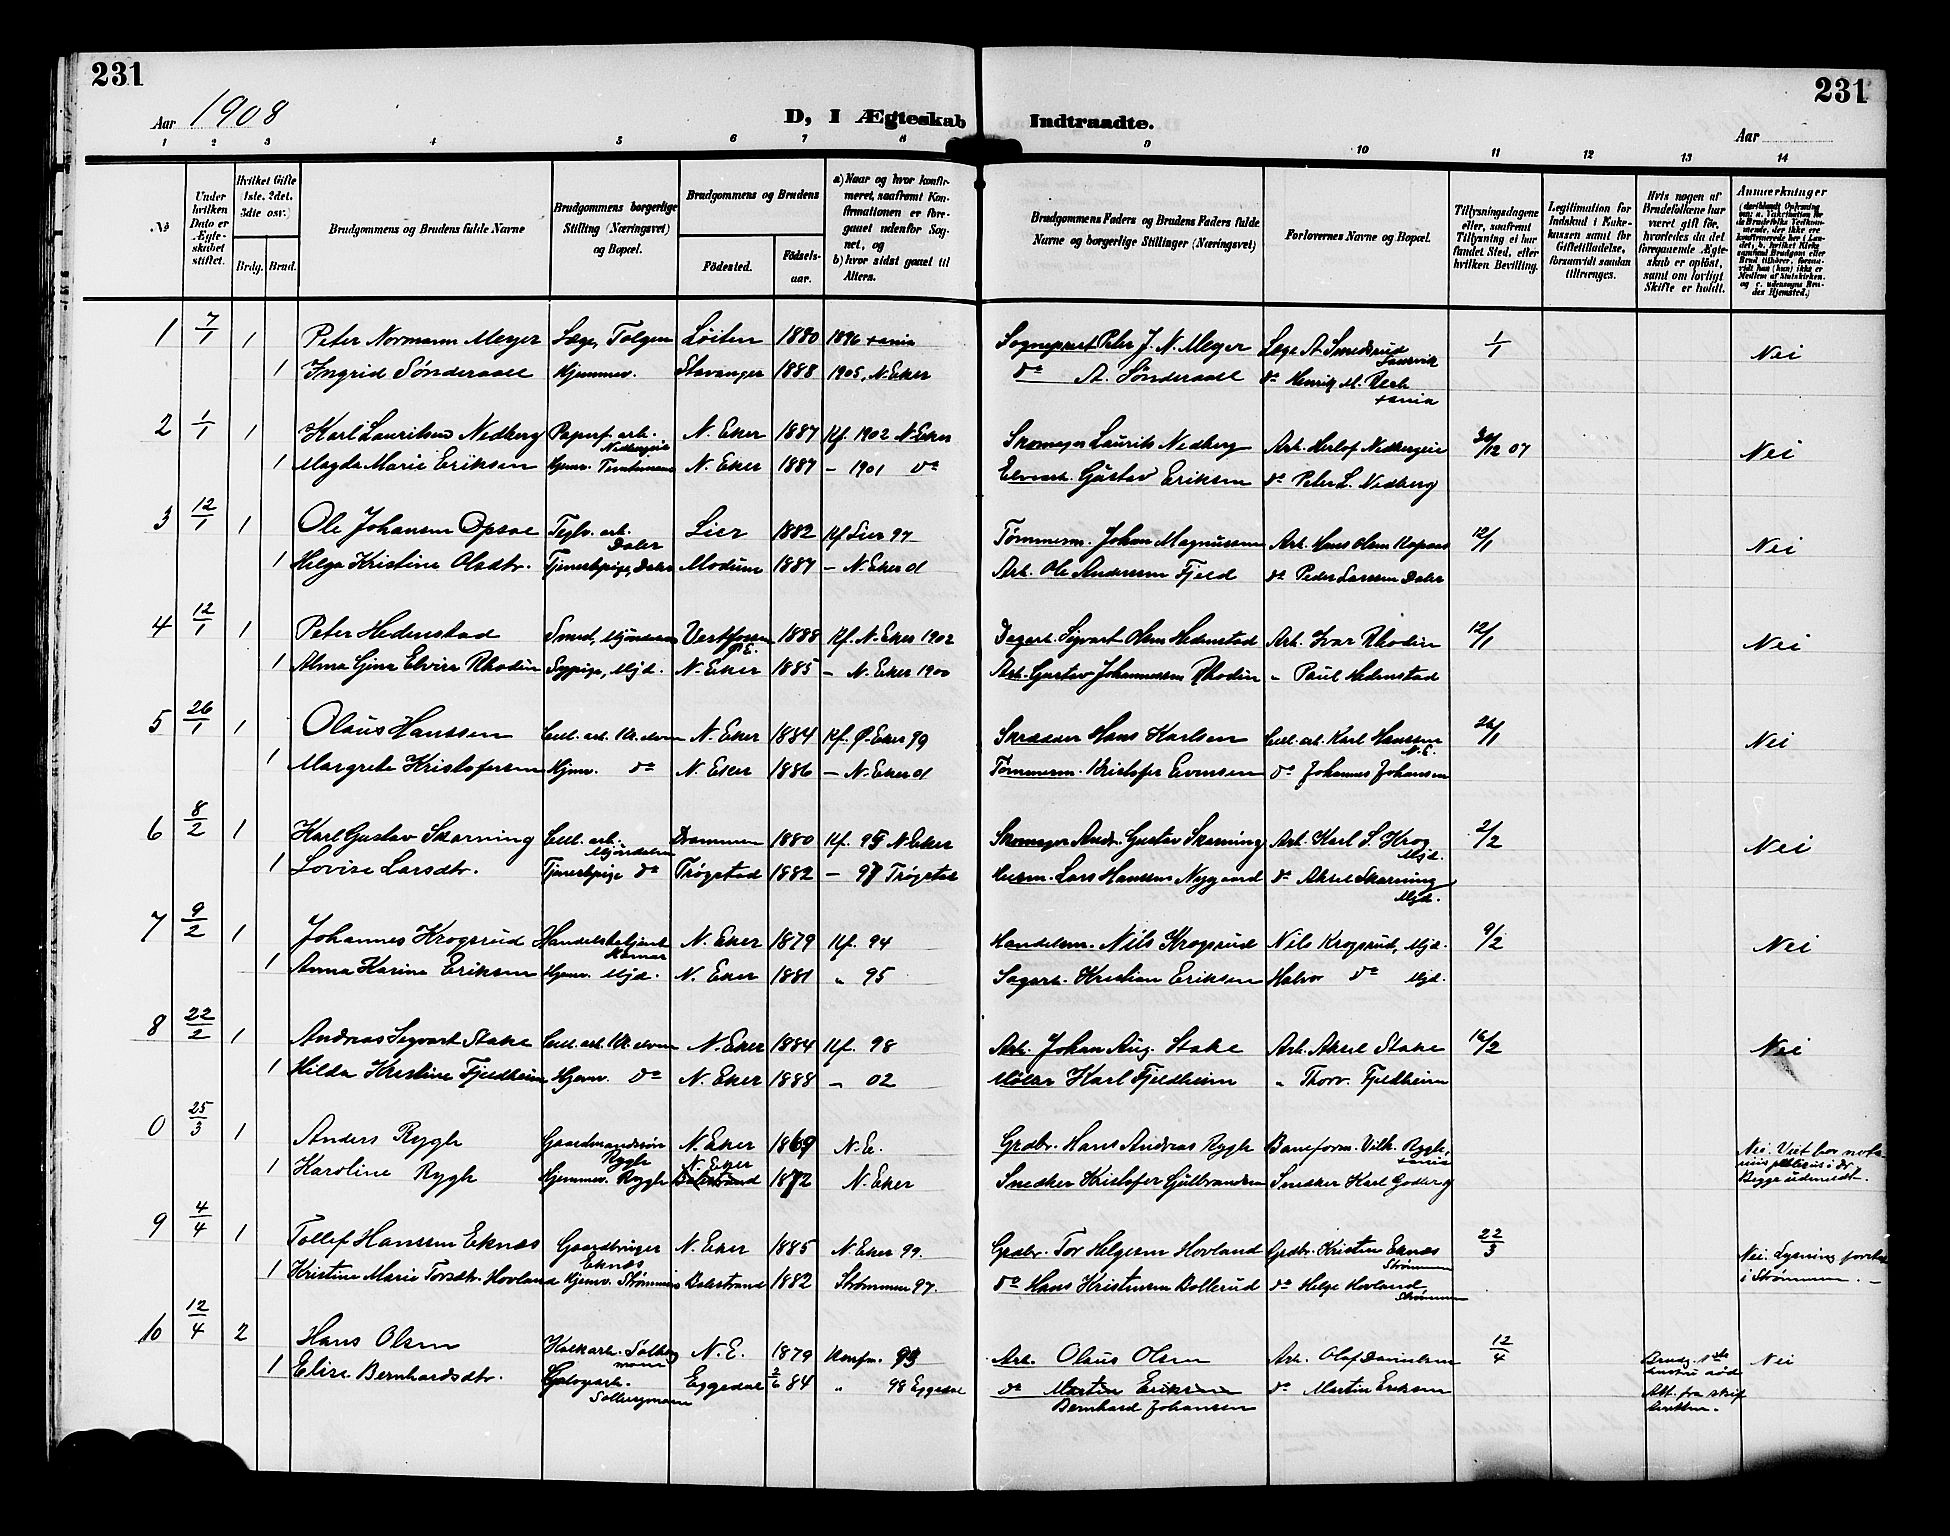 231
231
Aar 1908
D, I Ægteskab Indtraadte.
Aar
1 2 3 4 5 6 7 8 9 10 11 12 13 14
No
Under hvilken Dato er Ægteskabet stiftet.
Hvilket Gifte (1ste, 2det, 3die osv.)
Brdg. Brud.
Brudgommens og Brudens fulde Navne
Brudgommens borgerlige Stilling (Næringsvei) og Bopæl.
Brudgommens og Brudens
Fødested.
Fødselsaar.
a) Naar og hvor konfirmeret, saafremt Konfirmationen er foregaaet udenfor Sognet, og
b) hvor sidst gaaet til Alters.
Brudgommens Faders og Brudens Faders fulde Navne og borgerlige Stillinger (Næringsvei)
Forlovernes Navne og Bopæl.
Tillysningsdagene eller, saafremt Tillysning ei har fundet Sted, efter hvilken Bevilling.
Legitimation for Indskud i Enkekassen samt for Giftetilladelse, forsaavidt saadan tiltrænges.
Hvis nogen af Brudefolkene har været gift før, hvorledes da det foregaaende Ægteskab er opløst, samt om lovligt Skifte er holdt.
Anmærkninger
1 7/1 1 Peter Normann Meyer Læge, Tolgen Løiten 1880 1896 Sognepræst Peter J. N. Meyer Læge A Smedsrud 1/1 Nei
1 Ingrid Sønderaal Hjemmev. Stavanger 1888 1905, N. Eker do A. Sønderaal do Henrik M.
2 1/1 1 Karl Lauritsen Nedberg Papirf. arb. N. Eker 1887 Kf. 1902 N. Eker Skomager Laurits Nedberg Arb. Herlof 30/12 07 Nei
1 Magda Marie Eriksen Hjemv. N. Eker 1887 – 1901 do Gustav Eriksen do Peter L. Nedberg
3 12/1 1 Ole Johansen Opsal Teglv. arb. Daler Lier 1882 Kf Lier 97 Tømmerm. Johan Magnussen Arb. Hans Olsen 12/1 Nei
1 Helga Kristine Olsdtr. Tjenestpige, Daler Modum 1887 – N. Eker 01 Arb. Ole Anderssen Fjeld do Peder Larssen Daler
4 12/1 1 Peter Hedenstad Smed, Mjøndalen Vestfossen Ø. E. 1888 Kf. N. Eker 1902 Sigvart Olsen Hedenstad Arb. Ivar Rhodin 12/1 Nei
1 Alma Gina Elvire Rhodin Sypige, Mjd. N. Eker 1885 – N. Eker 1900 Arb. Gustav Johannessen Rhodin " Paul Hedenstad
5 26/1 1 Olaus Hanssen Cell. arb. Kr. elven N. Eker 1884 Kf. Ø. Eker 99 Skrædder Hans Karlsen Cell. arb. Karl Hanssen N. E. 26/1 Nei
1 Margrete Kristofersen Hjmv. do N. Eker 1886 – N. Eker 01 Tømmerm. Kristofer Evensen do Johannes Johansen
6 8/2 1 Karl Gustav Skarning Cell. arb. Mjøndalen Drammen 1880 Kf. 95 N. Eker Skomager Andr. Gustav Skarning Arb. Karl S. Krog Mjd. 2/2 Nei
1 Lovise Larsdtr. Tjenestpige do Trøgstad 1882 – 97 Trøgstad Husm. Lars Hanssen Nygaard do Aksel Skarning Mjd.
7 9/2 1 Johannes Krogsrud Handelsbetjent Hamar N. Eker 1879 Kf. 94 Handelsm. Nils Krogsrud Nils Krogsrud, Mjd. 9/2 Nei
1 Anna Karine Eriksen Hjemv. Mjd. N. Eker 1881 " 95 Sagarb. Kristian Eriksen Halvor do Mjd.
8 22/2 1 Andreas Sigvart Stake Cell. arb. Kr. elven N. Eker 1884 Kf. 98 Arb. Johan Aug. Stake Arb. Aksel Stake 16/2 Nei
1 Hilda Kristine Fjeldheim Hjemv. do N. Eker 1888 – 02 Møller Karl Fjeldheim " Thorv. Fjeldheim
0 25/3 1 Anders Rygh Gaardmandssøn Rygh N. Eker 1869 N. E. Grdbr. Hans Andreas Rygh Baneform. Vilh. Rygh, Nei. Viet hos notarius publicus i Dr. Begge udmeldt.
1 Karoline Rygh Hjemmev. Rygh N. Eker 1872 N. Eker Snedker Kristofer Gulbrandsen Snedker Karl Godberg
9 4/4 1 Tollef Hanssen Eknæs Gaardbruger Eknæs N. Eker 1885 N. Eker 99. Grdbr. Tor Helgesen Hovland Grdbr. Kristen Eknæs Strømmen 22/3 Nei. Lysning i Strømmen. –
1 Kristine Marie Torsdtr. Hovland Hjemv. Strømmen 1882 Strømmen 97. do Hans Kristensen Bollerud do Helge Hovland Strømmen
10 12/4 2 Hans Olsen N. E. 1879 Konfm. 93 Arb. Olaus Olsen Arb. Olaf Danielsen 12/4 Nei
1 Elise Bernhardsdtr. Solbergmoen Eggedal 2/6 84 " 98 Eggedal do Martin Eriksen do Martin Eriksen
Bernhard Johansen